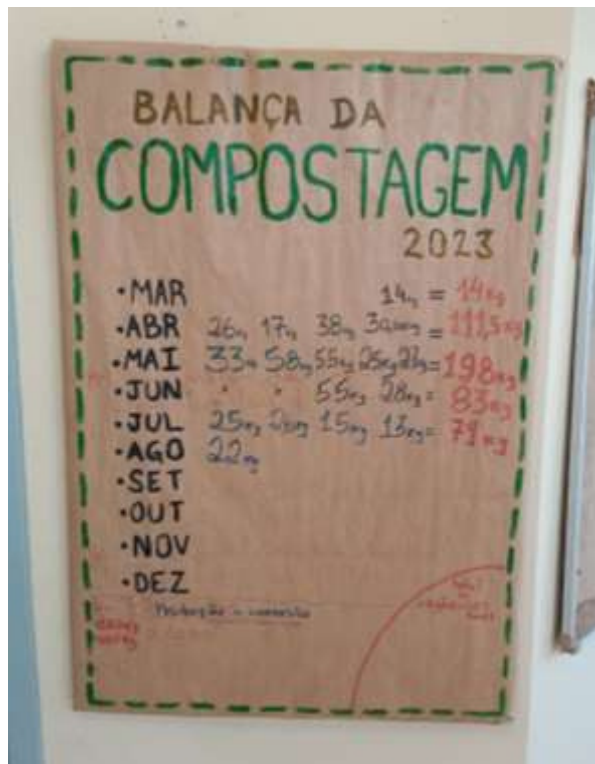 BALANÇA DA
COMPOSTAGEM
2023
•MAR 14kg = 14kg
•ABR 26kg 17kg 38kg = 111,5kg
•MAI 33kg 58kg 55kg 25kg 27kg = 198kg
•JUN 55kg 28kg = 83kg
•JUL 25kg 26kg 15kg 13kg = 79kg
•AGO 22kg
•SET
•OUT
•NOV
•DEZ